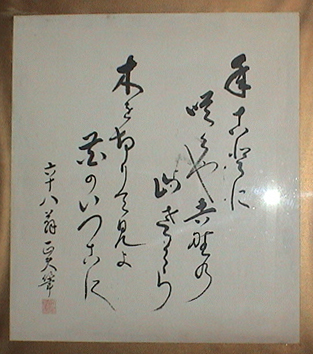 年ことに
咲くや吉野の
山さくら
木を切りて見よ
花のいつこに
六十八翁 筆